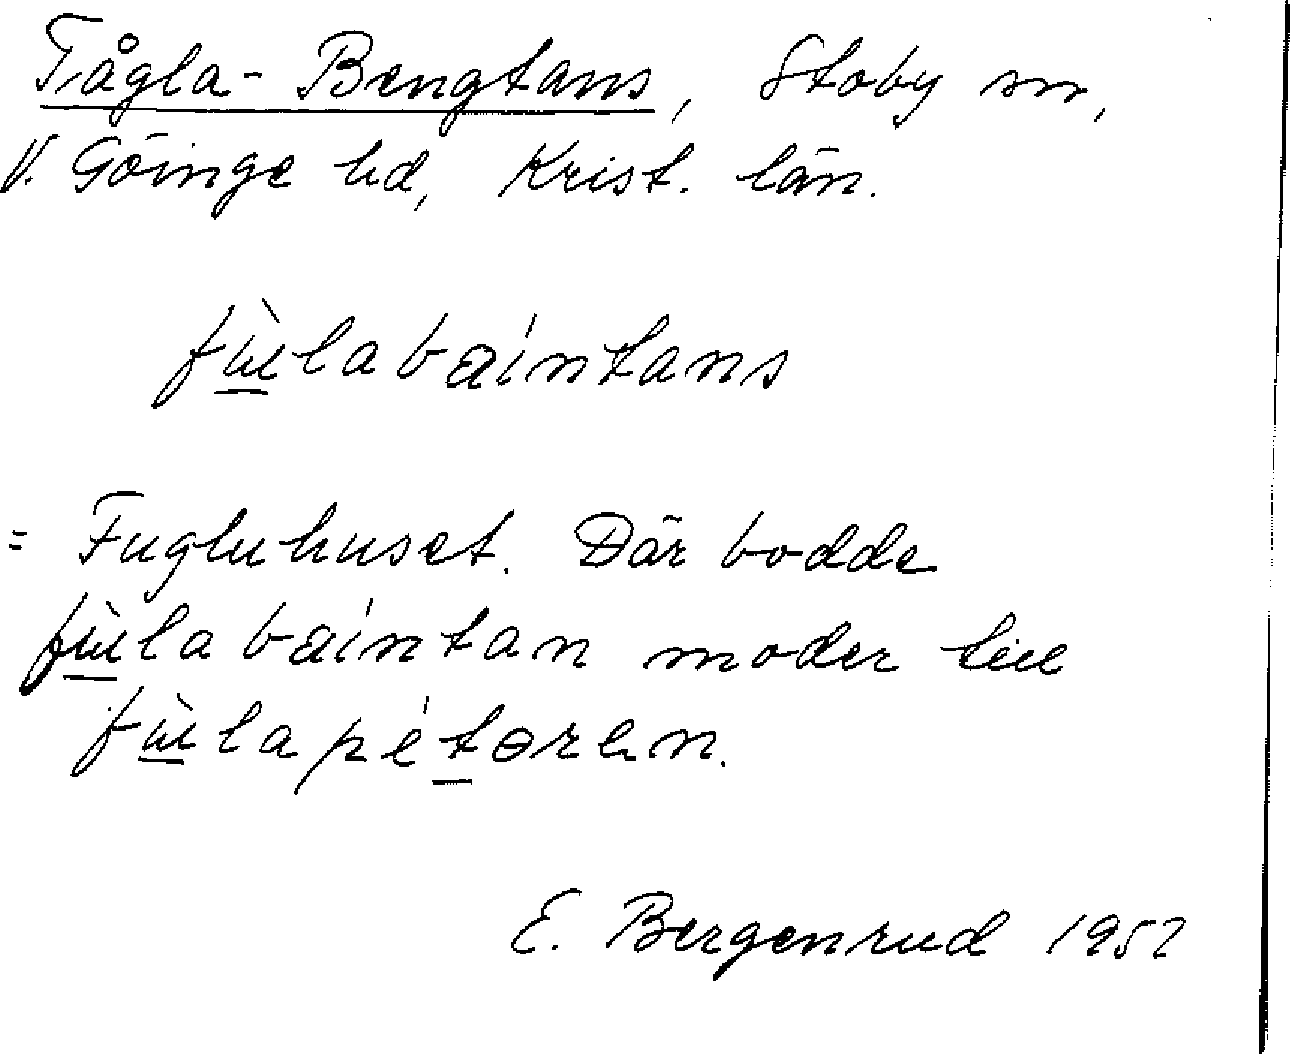 Fågla-Bengtans, Stoby sn,
V. Göinge hd, Krist. län.
fùla baíntans
= Fugluhuset. Där bodde
fùla baíntan moder till
fùla pétøren.
E. Bergenrud 1952